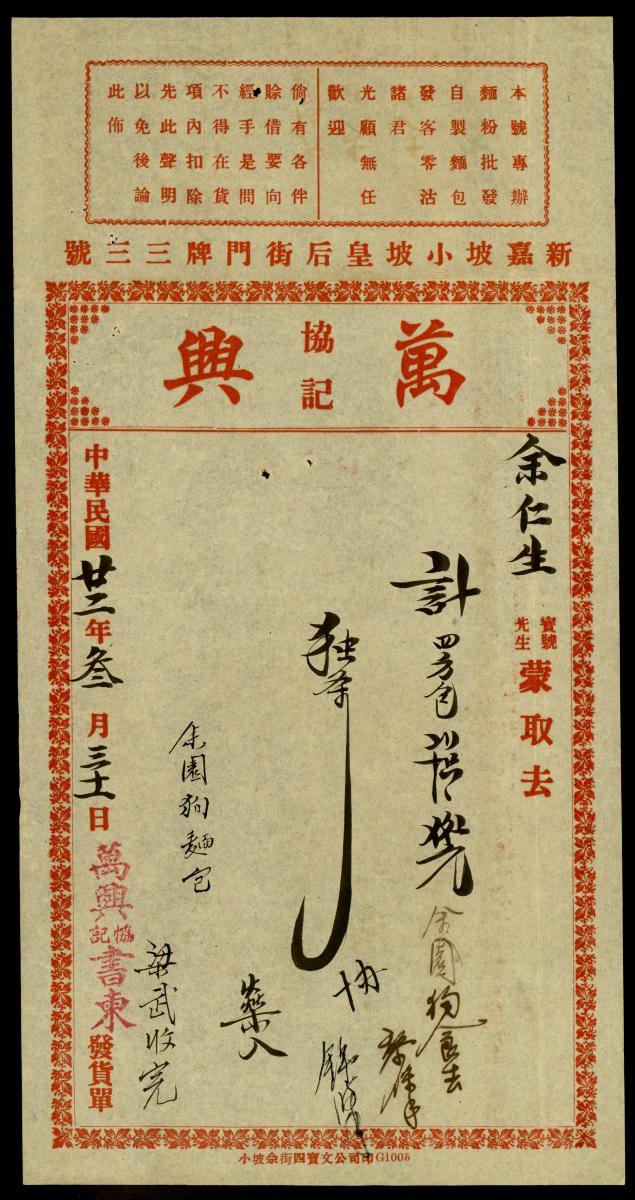 本號專辦
麵粉批發
自製麵包
發客零沽
諸君
光顧無任
歡迎
倘有各伴
賒借要向
經手是問
不得在貨
項內扣除
先此聲明
以免後論
此佈
新嘉坡小坡皇后街門牌三三號
萬興
協記
余仁生
寶號
先生
蒙取去
計四方包
余園狗食去
独
協
藥入
余園狗麵包
梁武收完
中華民國廿二年叁月三十一日
萬興協記書柬
發貨單
小坡余街四寶文公司印G1005